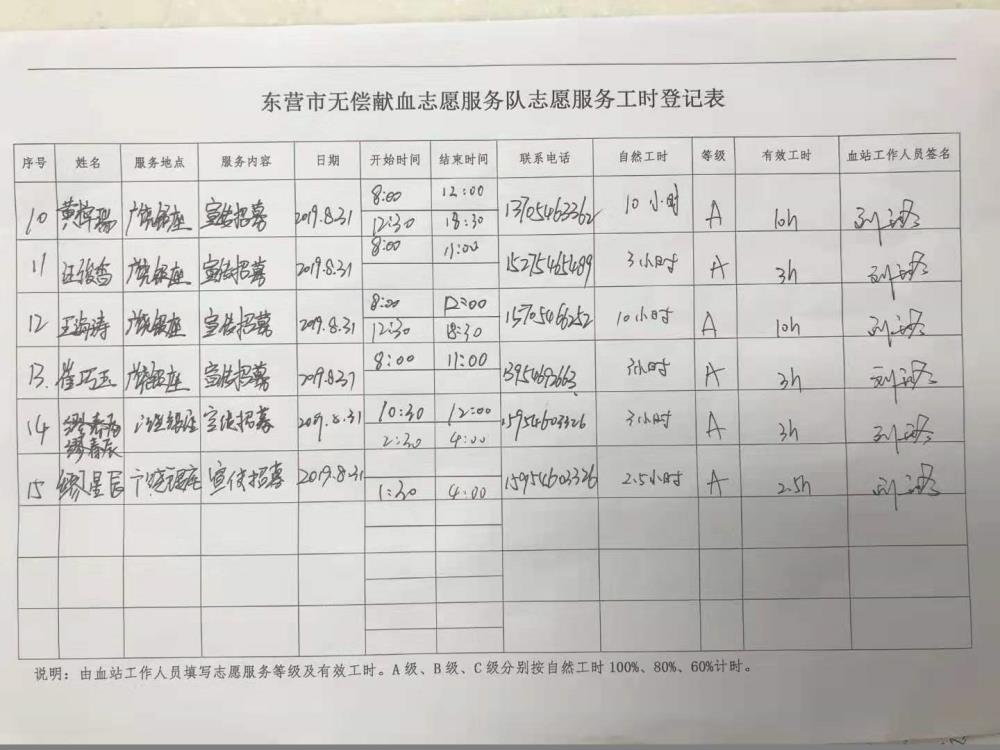 东营市无偿献血志愿服务队志愿服务工时登记表
序号 姓名 服务地点 服务内容 日期 开始时间 结束时间 联系电话 自然工时 等级 有效工时 血站工作人员签名
8:00 12:00
10 广饶银座 宣传招募 2019.8.31 13705463362 10小时 A 10h
12:30 18:30
8:00 11:00
11 广饶银座 宣传招募 2019.8.31 15275465489 3小时 A 3h
8:00 12:00
12 王海涛 广饶银座 宣传招募 2019.8.31 15705466252 10小时 A 10h
12:30 18:30
8:00 11:00
13 崔巧玉 广饶银座 宣传招募 2019.8.31 13954692663 3小时 A 3h
10:30 12:00
14 广饶银座 宣传招募 2019.8.31 15954603326 3小时 A 3h
缪春辰 2:30 4:00
15 缪星辰 广饶银座 宣传招募 2019.8.31 15954603326 2.5小时 A 2.5h
1:30 4:00
说明：由血站工作人员填写志愿服务等级及有效工时。A级、B级、C级分别按自然工时100%、80%、60%计时。